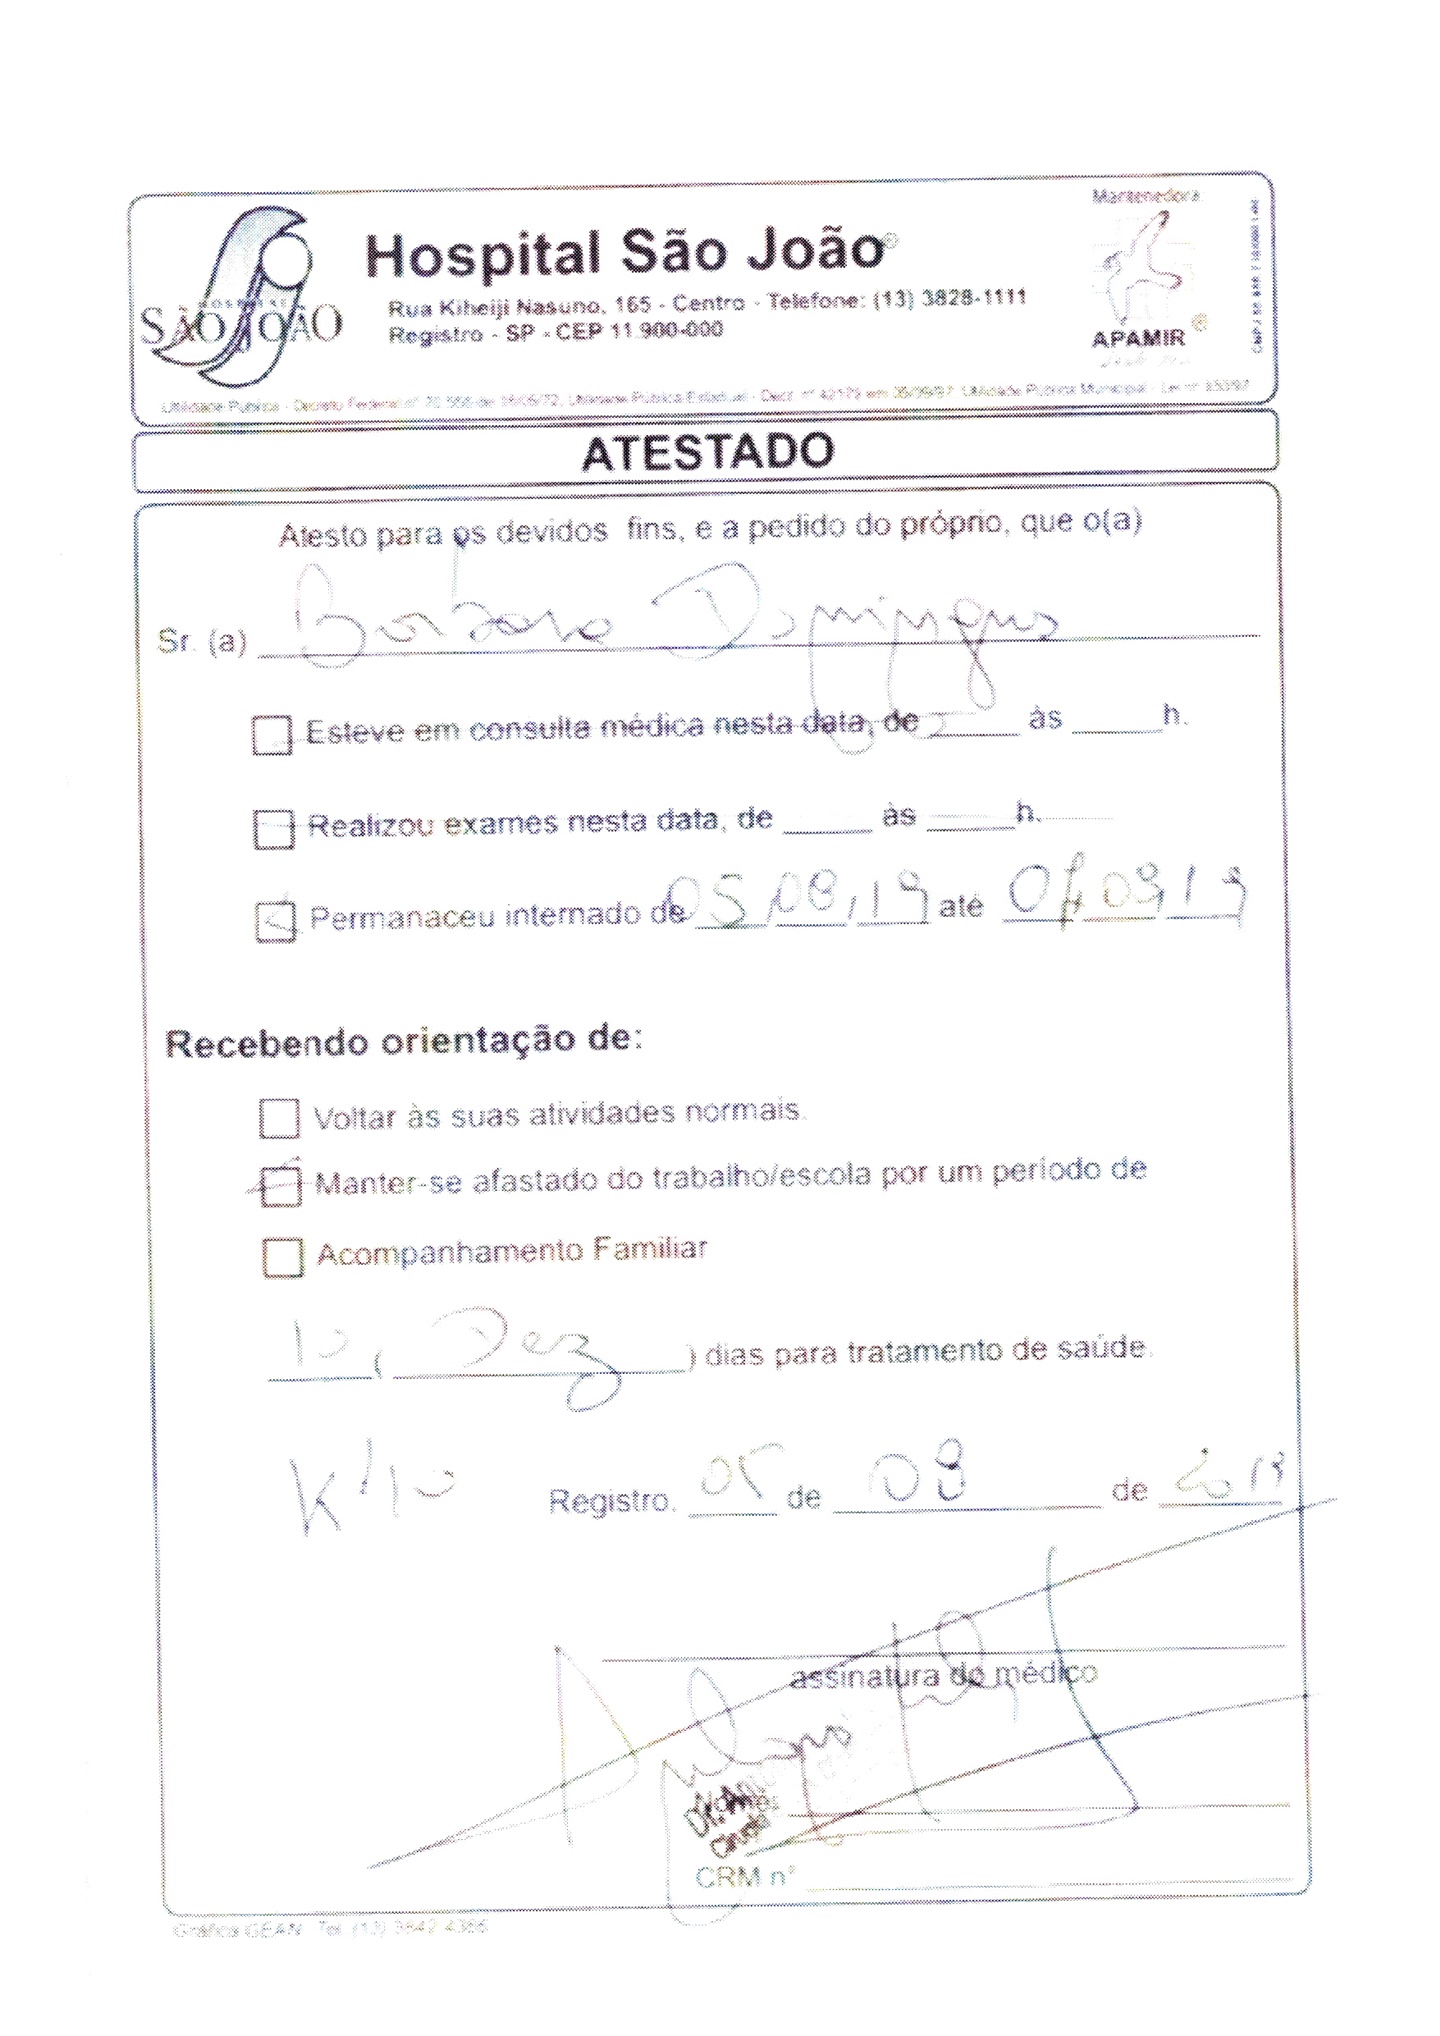 Mantenedora
Hospital São João®
Rua Kiheiji Nasuno, 165 - Centro - Telefone: (13) 3828-1111
Registro - SP - CEP 11.900-000
HOSPITAL
SÃO JOÃO
APAMIR®
Utilidade Pública - Decreto Federal nº Utilidade Pública Estadual - Decr. nº 42175 em Utilidade Pública Municipal - Lei nº
ATESTADO
Atesto para os devidos fins, e a pedido do próprio, que o(a)
Sr. (a) Barbara Domingues
Esteve em consulta médica nesta data, de ____ às ____ h.
Realizou exames nesta data, de ____ às ____ h.
Permanaceu internado de 05/08/19 até 07/08/19
Recebendo orientação de:
Voltar às suas atividades normais.
Manter-se afastado do trabalho/escola por um período de
Acompanhamento Familiar
10 ( Dez ) dias para tratamento de saúde.
Registro, 05 de 08 de 2019
assinatura do médico
CRM nº
Gráfica GEAN Tel. (13) 3842-4366